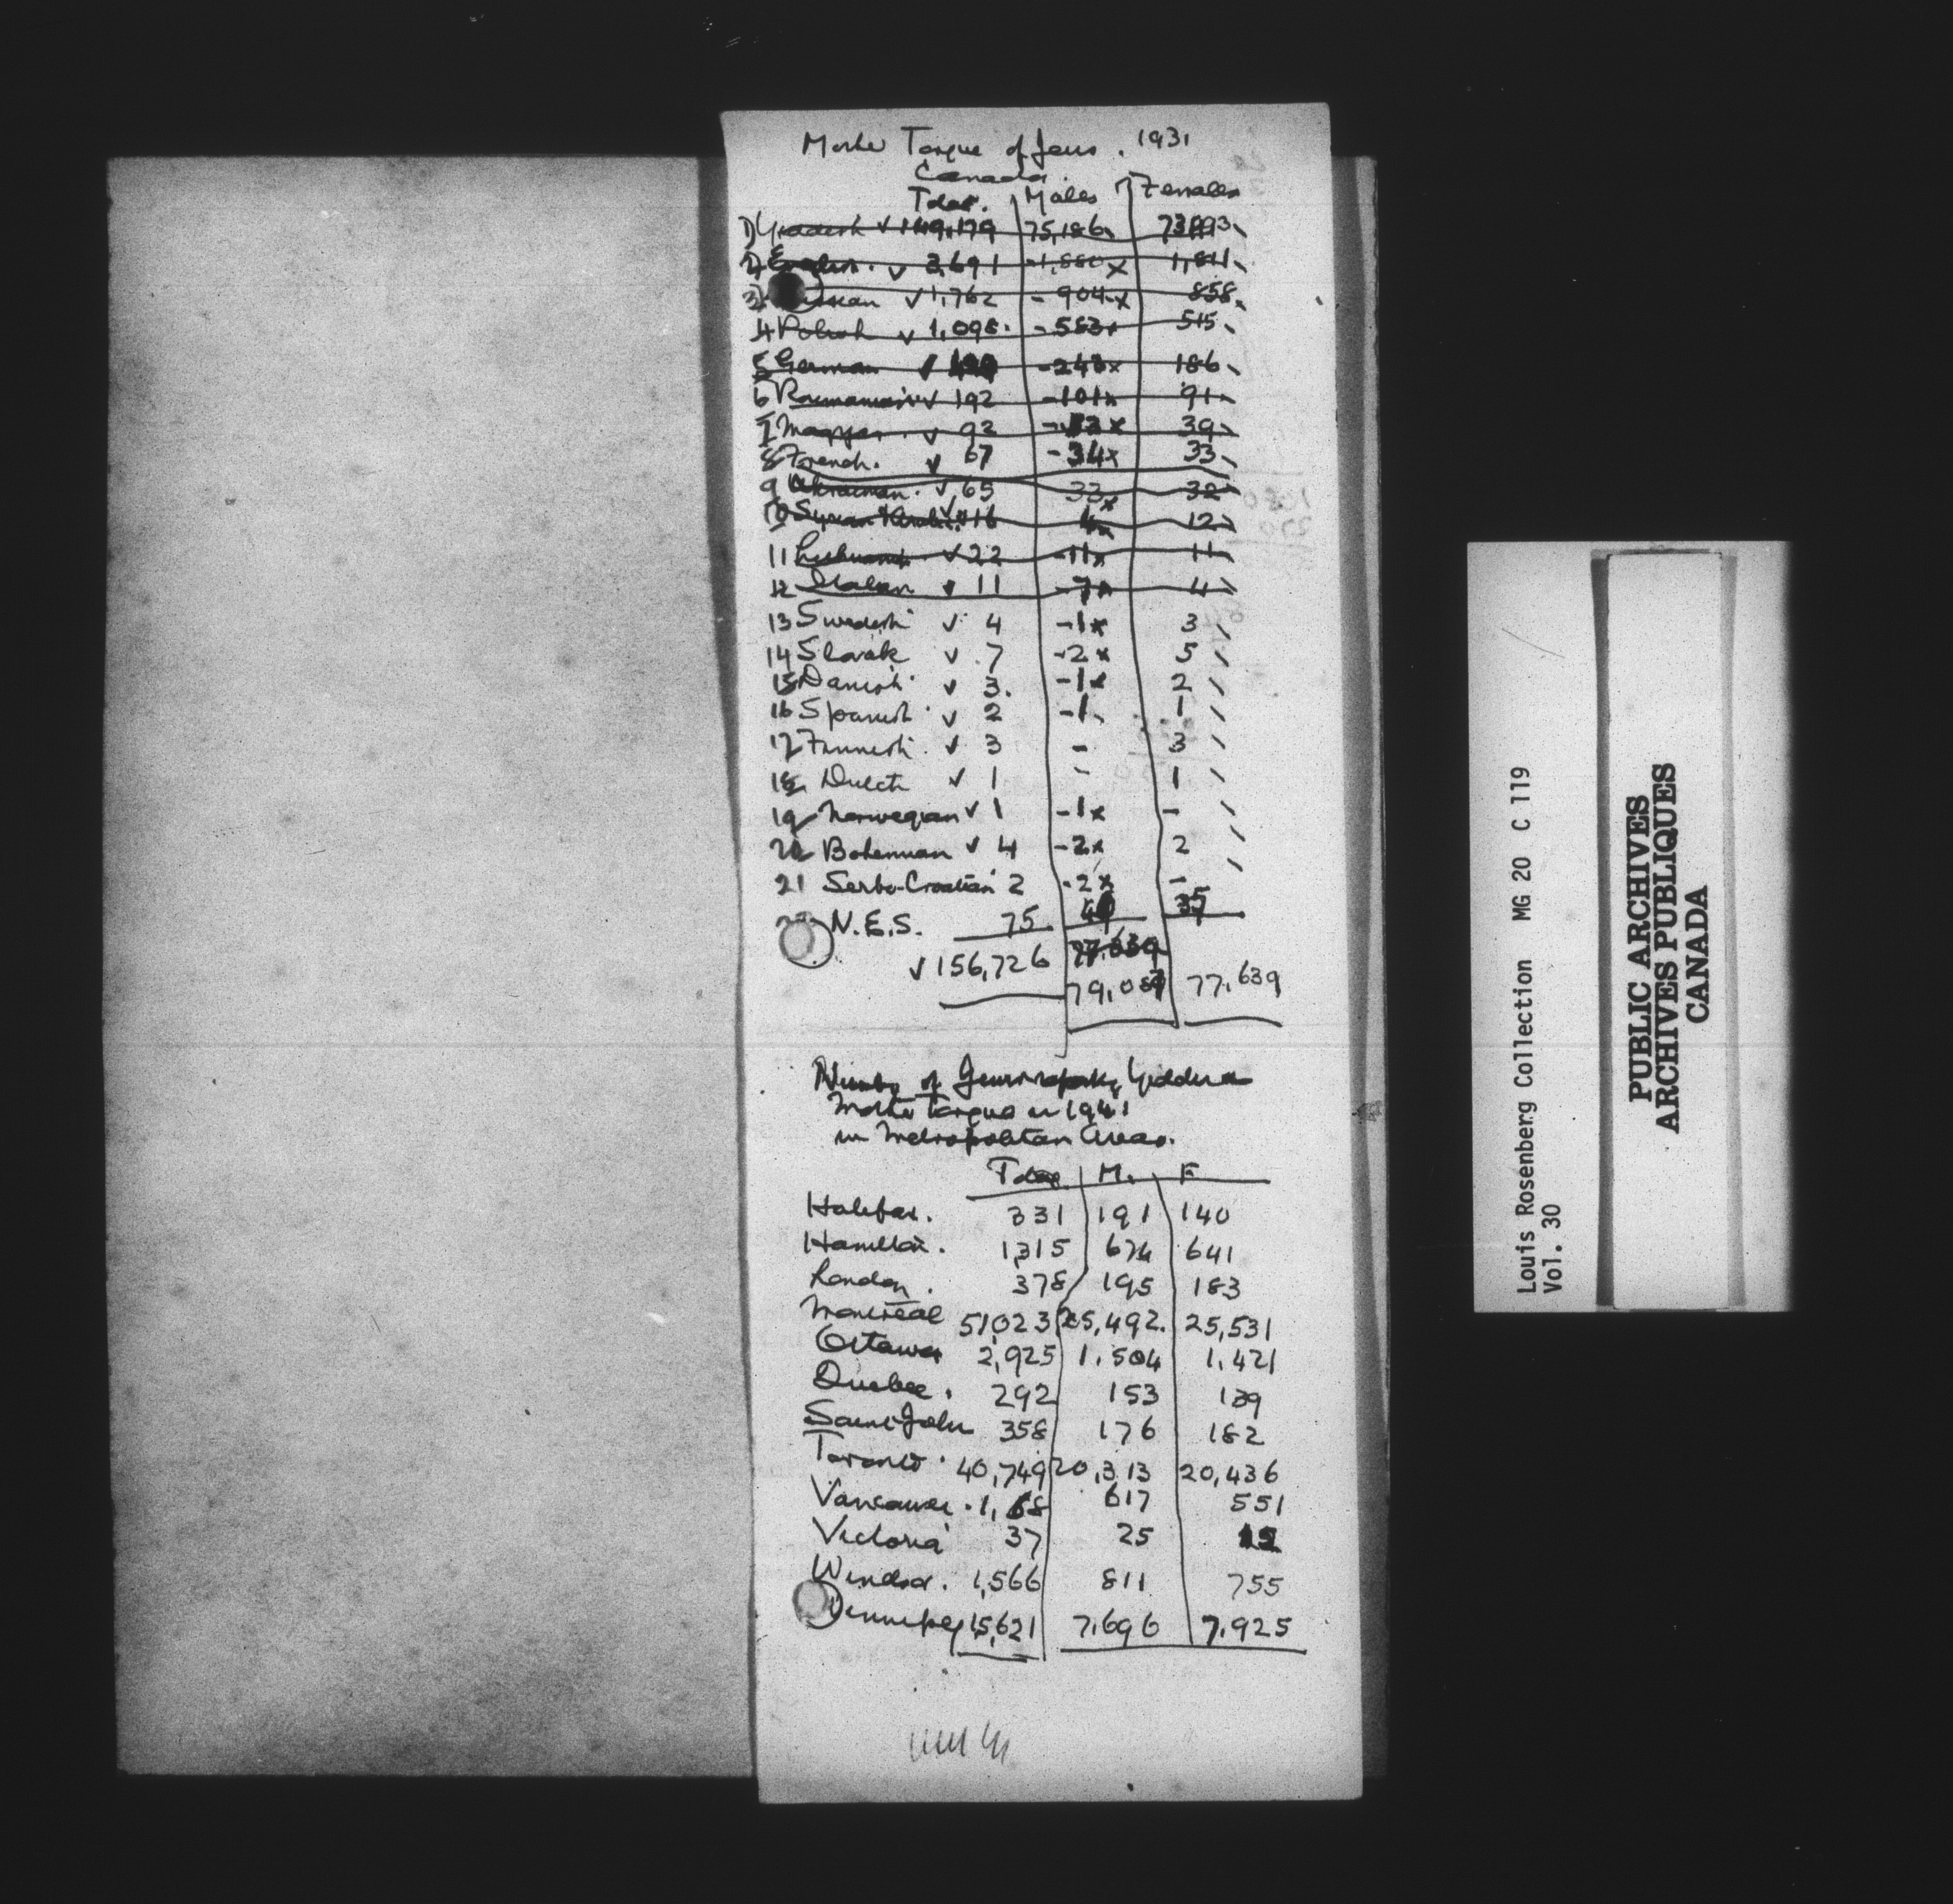 Mother Tongue of Jews. 1931
Canada.
Total. Males Females
1) Yiddish ✓ 149,179 75,186 73,993
2) English. ✓ 3,691 - 1,880 x 1,811
3) ssian ✓ 1,762 - 904 x 858
4 Polish ✓ 1,098 - 583 x 515
5 German ✓ - 243 x 186
6 Roumanian ✓ 192 - 101 x 91
7 Magyar. ✓ 92 - 53 x 39
8 French. ✓ 67 - 34 x 33
9 Ukrainian. ✓ 65 33 x 32
10 Syrian & Arabic ✓ 16 4 x 12
11 Lithuanian ✓ 22 - 11 x 11
12 Italian ✓ 11 - 7 x 4
13 Swedish ✓ 4 - 1 x 3
14 Slovak ✓ 7 - 2 x 5
15 Danish ✓ 3. - 1 x 2
16 Spanish ✓ 2 - 1 1
17 Finnish ✓ 3 - 3
18 Dutch ✓ 1 - 1
19 Norwegian ✓ 1 - 1 x -
20 Bohemian ✓ 4 - 2 x 2
21 Serbo-Croatian 2 - 2 x -
N.E.S. 75 40 35
77,639
✓ 156,726 79,087 77,639
Number of Jews reporting Yiddish as
Mother Tongue in 1941
in Metropolitan Areas.
Total M. F
Halifax. 331 191 140
Hamilton. 1,315 674 641
London. 378 195 183
Montreal 51,023 25,492. 25,531
Ottawa 2,925 1,504 1,421
Quebec. 292 153 139
Saint John 358 176 182
Toronto. 40,749 20,313 20,436
Vancouver. 1,168 617 551
Victoria 37 25 12
Windsor. 1,566 811 755
Winnipeg 15,621 7,696 7,925
Louis Rosenberg Collection MG 20 C 119
Vol. 30
PUBLIC ARCHIVES
ARCHIVES PUBLIQUES
CANADA